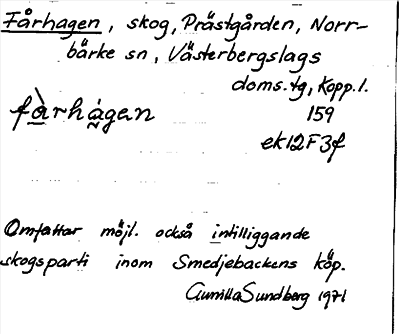 Fårhagen, skog, Prästgården, Norr-
bärke sn, Västerbergslags
doms.tg, Kopp.l.
fàrhágen
159
ek12F3f
Omfattar möjl. också intilliggande
skogsparti inom Smedjebackens köp.
Gunilla Sundberg 1971